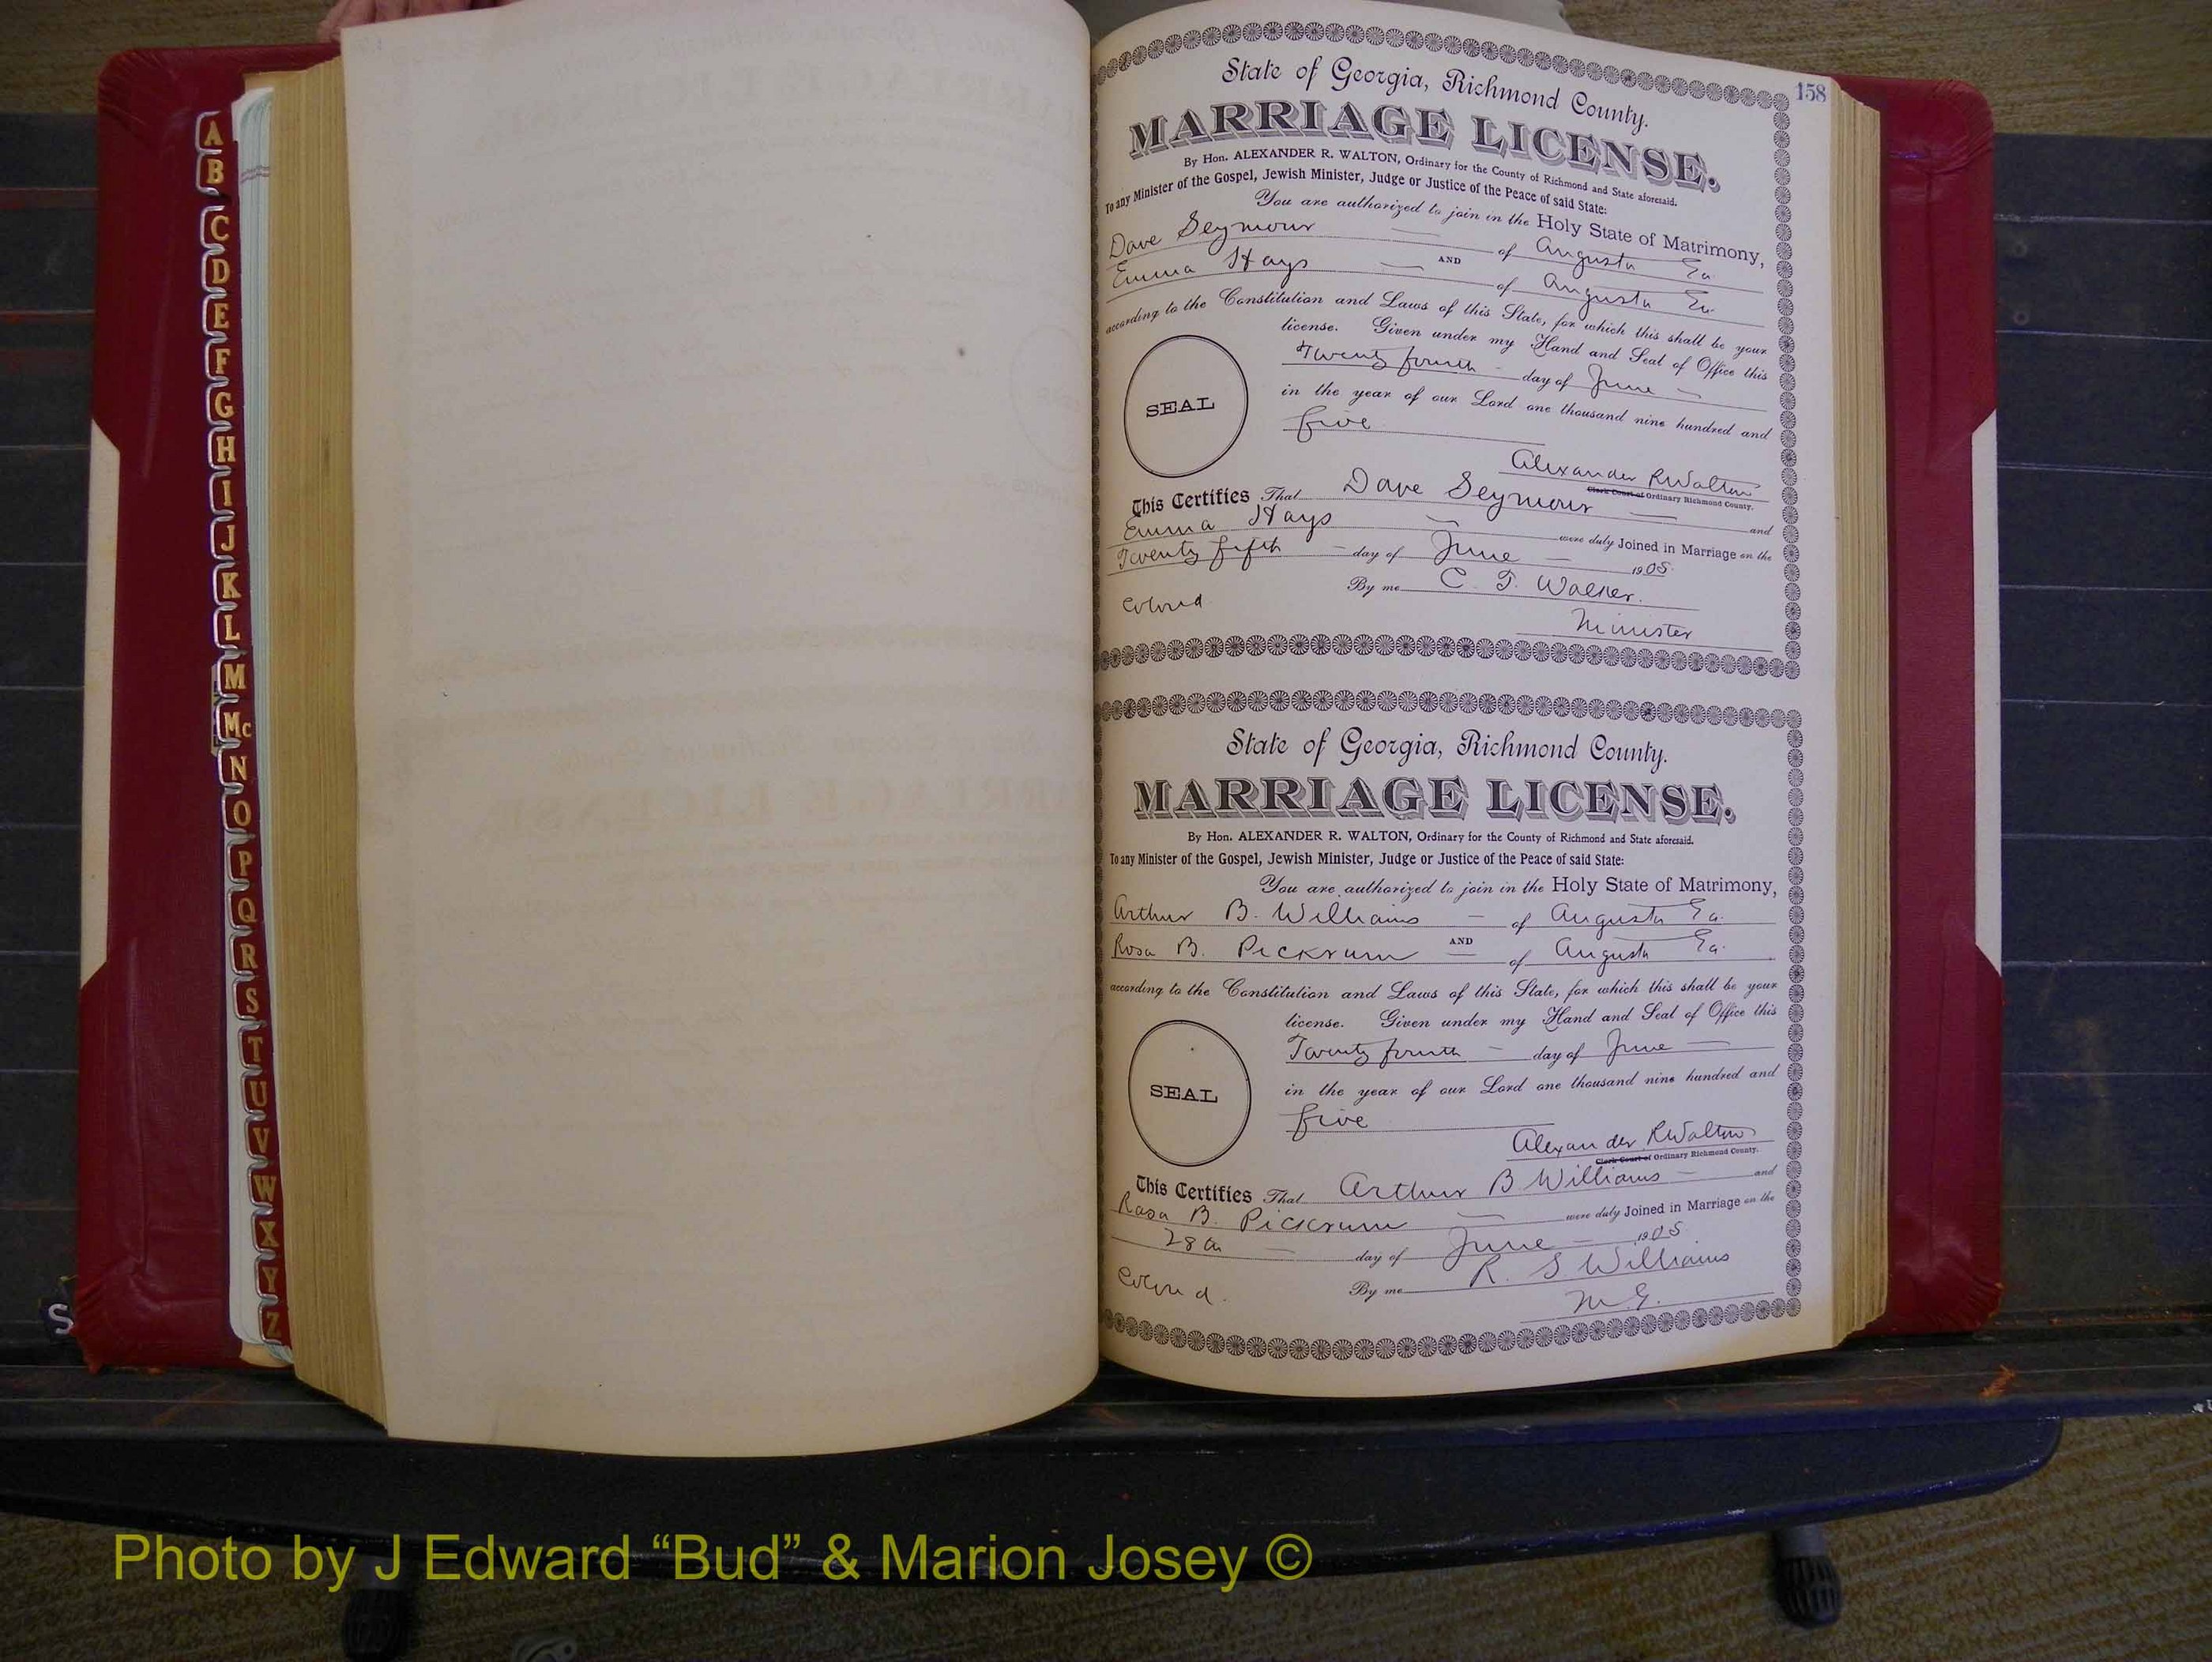 A
B
C
D
E
F
G
H
I
J
K
L
M
Mc
N
O
P
Q
R
S
T
U
V
W
X
Y
Z
S
158
State of Georgia, Richmond County.
MARRIAGE LICENSE.
By Hon. ALEXANDER R. WALTON, Ordinary for the County of Richmond and State aforesaid.
To any Minister of the Gospel, Jewish Minister, Judge or Justice of the Peace of said State:
You are authorized to join in the Holy State of Matrimony,
Dave Seymour — of Augusta Ga.
AND
Emma Hays — of Augusta Ga.
according to the Constitution and Laws of this State, for which this shall be your
license. Given under my Hand and Seal of Office this
Twenty fourth - day of June -
in the year of our Lord one thousand nine hundred and
five
SEAL
Alexander R Walton
Clerk Court of Ordinary Richmond County.
This Certifies That Dave Seymour — and
Emma Hays — were duly Joined in Marriage on the
Twenty fifth - day of June — 1905.
By me C. T. Walker.
Colored
Minister
State of Georgia, Richmond County.
MARRIAGE LICENSE.
By Hon. ALEXANDER R. WALTON, Ordinary for the County of Richmond and State aforesaid.
To any Minister of the Gospel, Jewish Minister, Judge or Justice of the Peace of said State:
You are authorized to join in the Holy State of Matrimony,
Arthur B. Williams - of Augusta Ga.
AND
Rosa B. Pickrum — of Augusta Ga.
according to the Constitution and Laws of this State, for which this shall be your
license. Given under my Hand and Seal of Office this
Twenty fourth - day of June —
in the year of our Lord one thousand nine hundred and
five
SEAL
Alexander R Walton
Clerk Court of Ordinary Richmond County.
This Certifies That Arthur B Williams - and
Rosa B. Pickrum — were duly Joined in Marriage on the
28th — day of June - 1905.
By me R. S Williams
Colored.
M.G.
Photo by J Edward “Bud” & Marion Josey ©